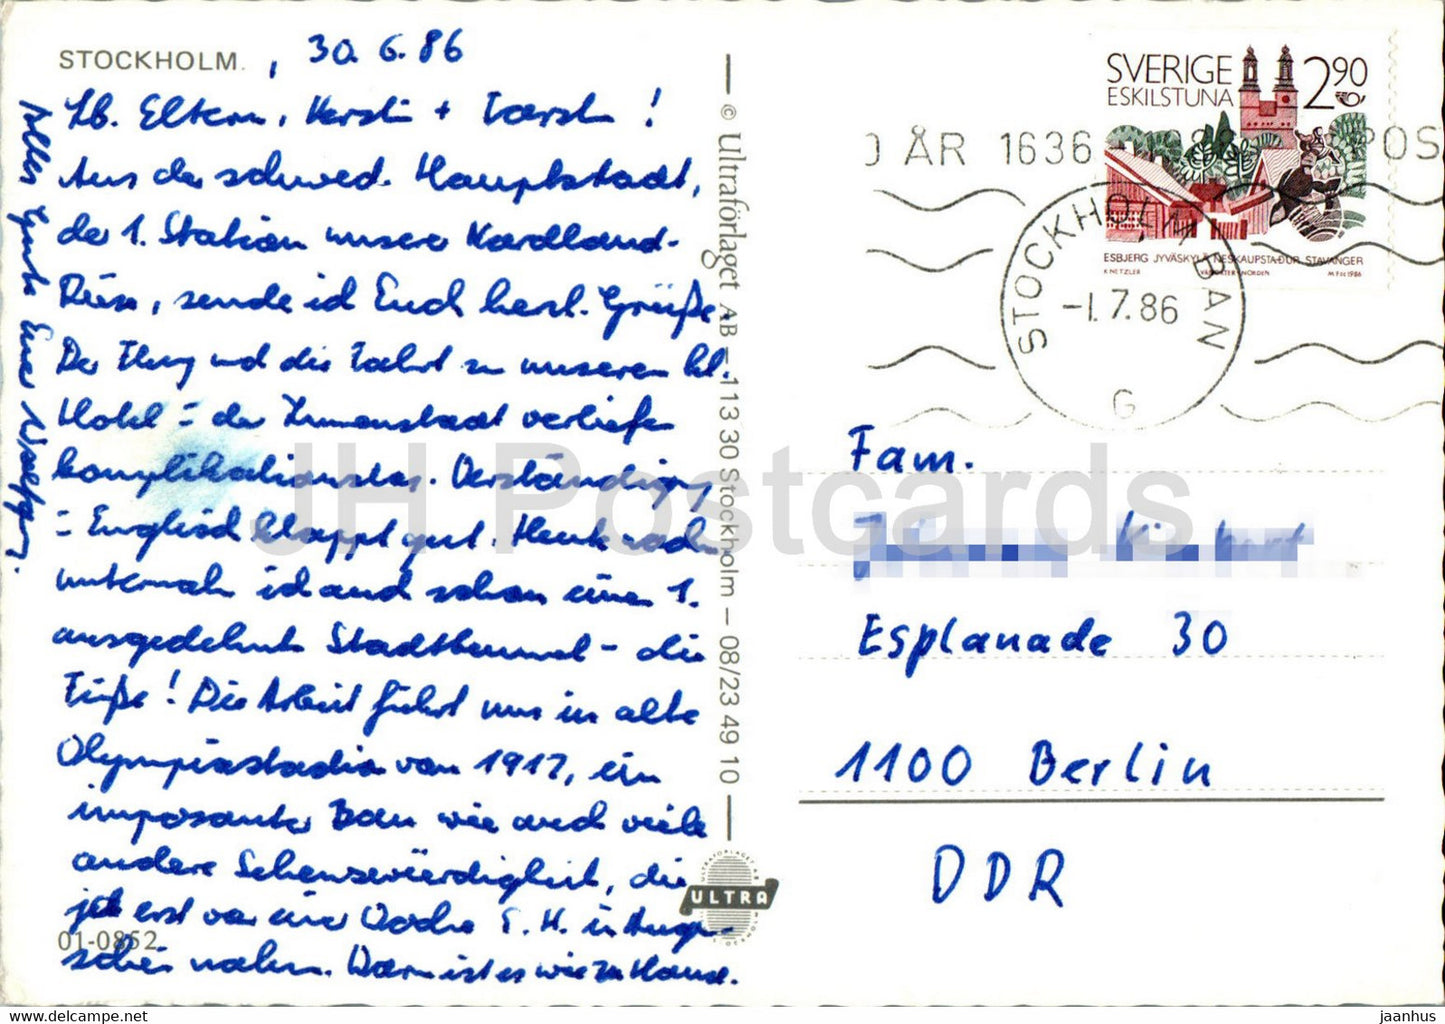 STOCKHOLM. , 30. 6. 86
Lb. Eltern, Kerstin + Torsten !
Aus der schwed. Hauptstadt,
der 1. Station unserer Nordland-
Reise, sende ich Euch herzl. Grüße.
Der Flug und die Fahrt zu unserem kl.
Hotel in der Innenstadt verliefen
komplikationslos. Verständigung
in Englisch klappt gut. Heute nachm.
unternahm ich auch schon einen 1.
ausgedehnten Stadtbummel - die
Füße! Die Arbeit führt uns in alte
Olympiastadion von 1912, ein
imposanter Bau wie auch viele
andere Sehenswürdigkeiten, die
jetzt erst vor einer Woche E. H. in Augen-
schein nahm. Warm ist es wie zu Hause.
Alles Gute Euer
01-0852
© Ultraförlaget AB – 113 30 Stockholm – 08/23 49 10
ULTRA
SVERIGE 2.90
ESKILSTUNA
ESBJERG JYVÄSKYLÄ NESKAUPSTAÐUR STAVANGER
K NETZLER VÄNORTER-NORDEN 1986
ÅR 1636 POS
STOCKHOLM BAN
-1.7.86
G
Fam.
Esplanade 30
1100 Berlin
DDR
JH Postcards
hippostcard.com/store/jh-postcards
jaanhus